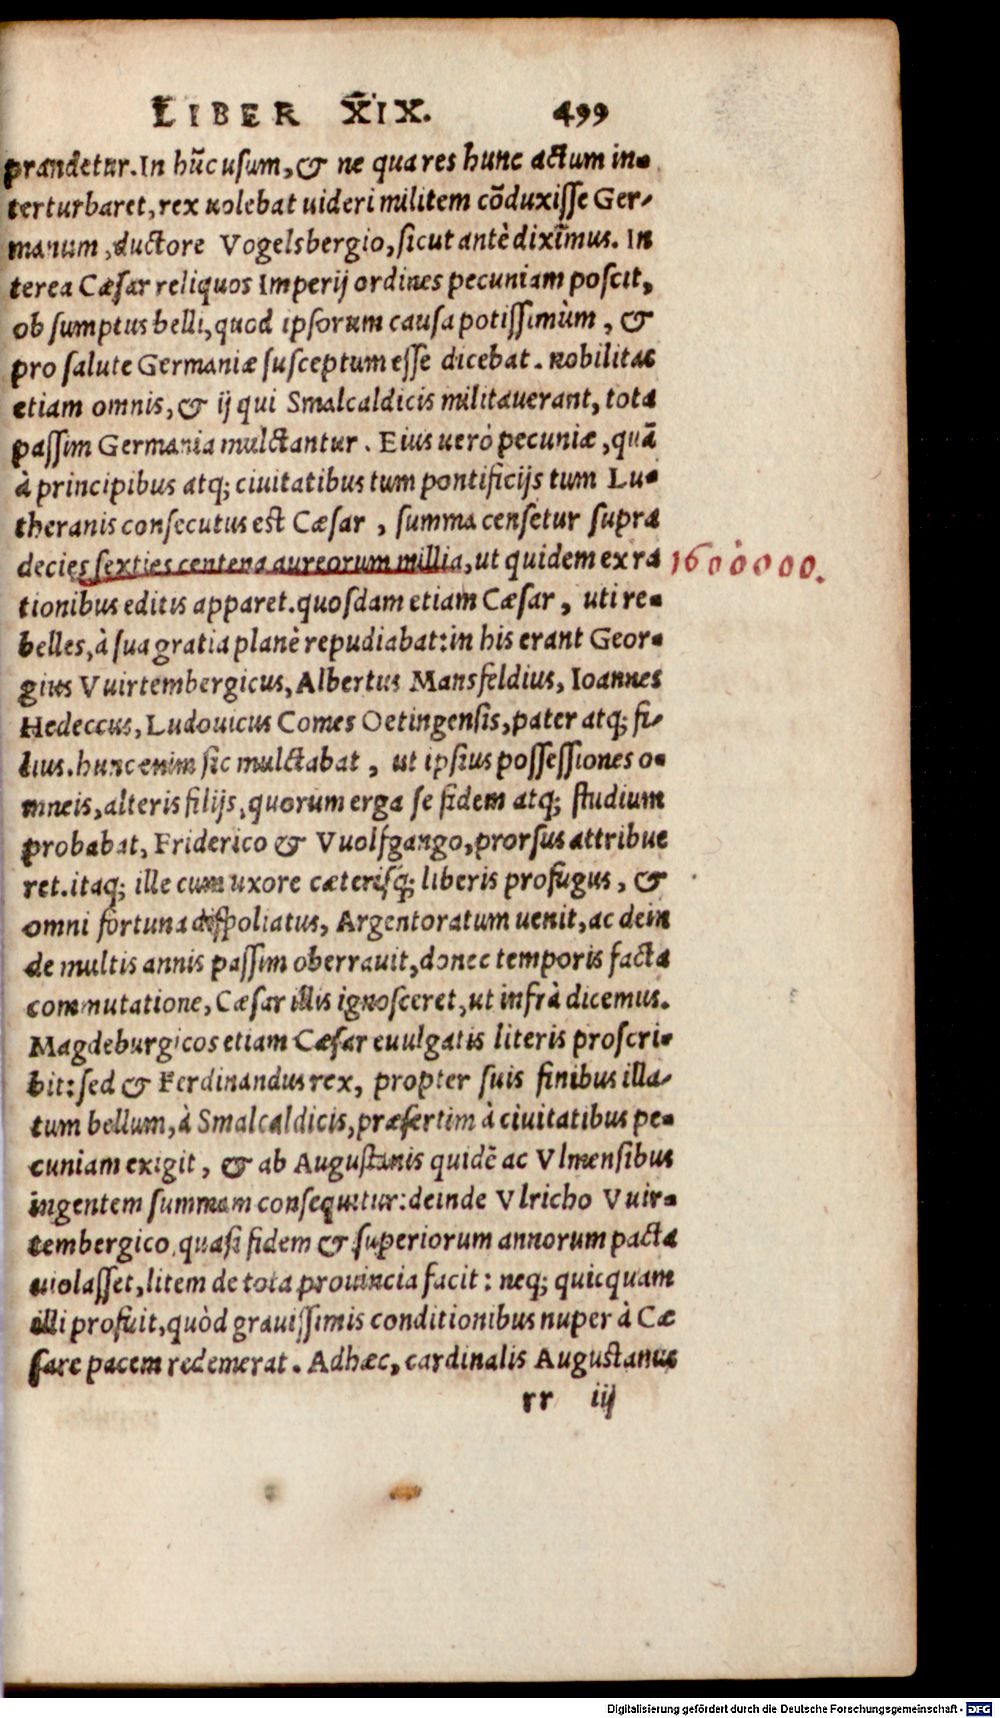 LIBER XIX. 499
prandetur. In hūc usum, & ne qua res hunc actum in-
terturbaret, rex uolebat uideri militem cōduxisse Ger-
manum, ductore Vogelsbergio, sicut antè diximus. In
terea Cæsar reliquos Imperij ordines pecuniam poscit,
ob sumptus belli, quod ipsorum causa potissimùm, &
pro salute Germaniæ susceptum esse dicebat. nobilitas
etiam omnis, & ij qui Smalcaldicis militauerant, tota
passim Germania mulctantur. Eius uerò pecuniæ, quā
à principibus atq; ciuitatibus tum pontificijs tum Lu-
theranis consecutus est Cæsar, summa censetur supra
decies sexties centena aureorum millia, ut quidem ex ra 1600000.
tionibus editis apparet. quosdam etiam Cæsar, uti re-
belles, à sua gratia planè repudiabat: in his erant Geor-
gius Vuirtembergicus, Albertus Mansfeldius, Ioannes
Hedeccus, Ludouicus Comes Oetingensis, pater atq; fi-
lius. hunc enim sic mulctabat, ut ipsius possessiones o-
mneis, alteris filijs, quorum erga se fidem atq; studium
probabat, Friderico & Vuolfgango, prorsus attribue
ret. itaq; ille cum uxore cæterisq́; liberis profugus, &
omni fortuna dispoliatus, Argentoratum uenit, ac dein
de multis annis passim oberrauit, donec temporis facta
commutatione, Cæsar illis ignosceret, ut infrà dicemus.
Magdeburgicos etiam Cæsar euulgatis literis proscri-
bit: sed & Ferdinandus rex, propter suis finibus illa-
tum bellum, à Smalcaldicis, præsertim à ciuitatibus pe-
cuniam exigit, & ab Augustanis quidē ac Vlmensibus
ingentem summam consequitur: deinde Vlricho Vuir-
tembergico, quasi fidem & superiorum annorum pacta
uiolasset, litem de tota prouincia facit: neq; quicquam
illi profuit, quòd grauissimis conditionibus nuper à Cæ
sare pacem redemerat. Adhæc, cardinalis Augustanus
rr iij
Digitalisierung gefördert durch die Deutsche Forschungsgemeinschaft - DFG